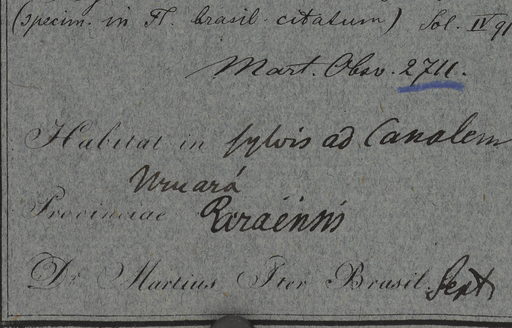 (specim. in Fl. brasil. citatum) Sol. IV 91
Mart. Obsv. 2711.
Habitat in sylvis ad Canalem
Uruará
Provinciae Paraënsis
Dr. Martius Iter Brasil. Sept